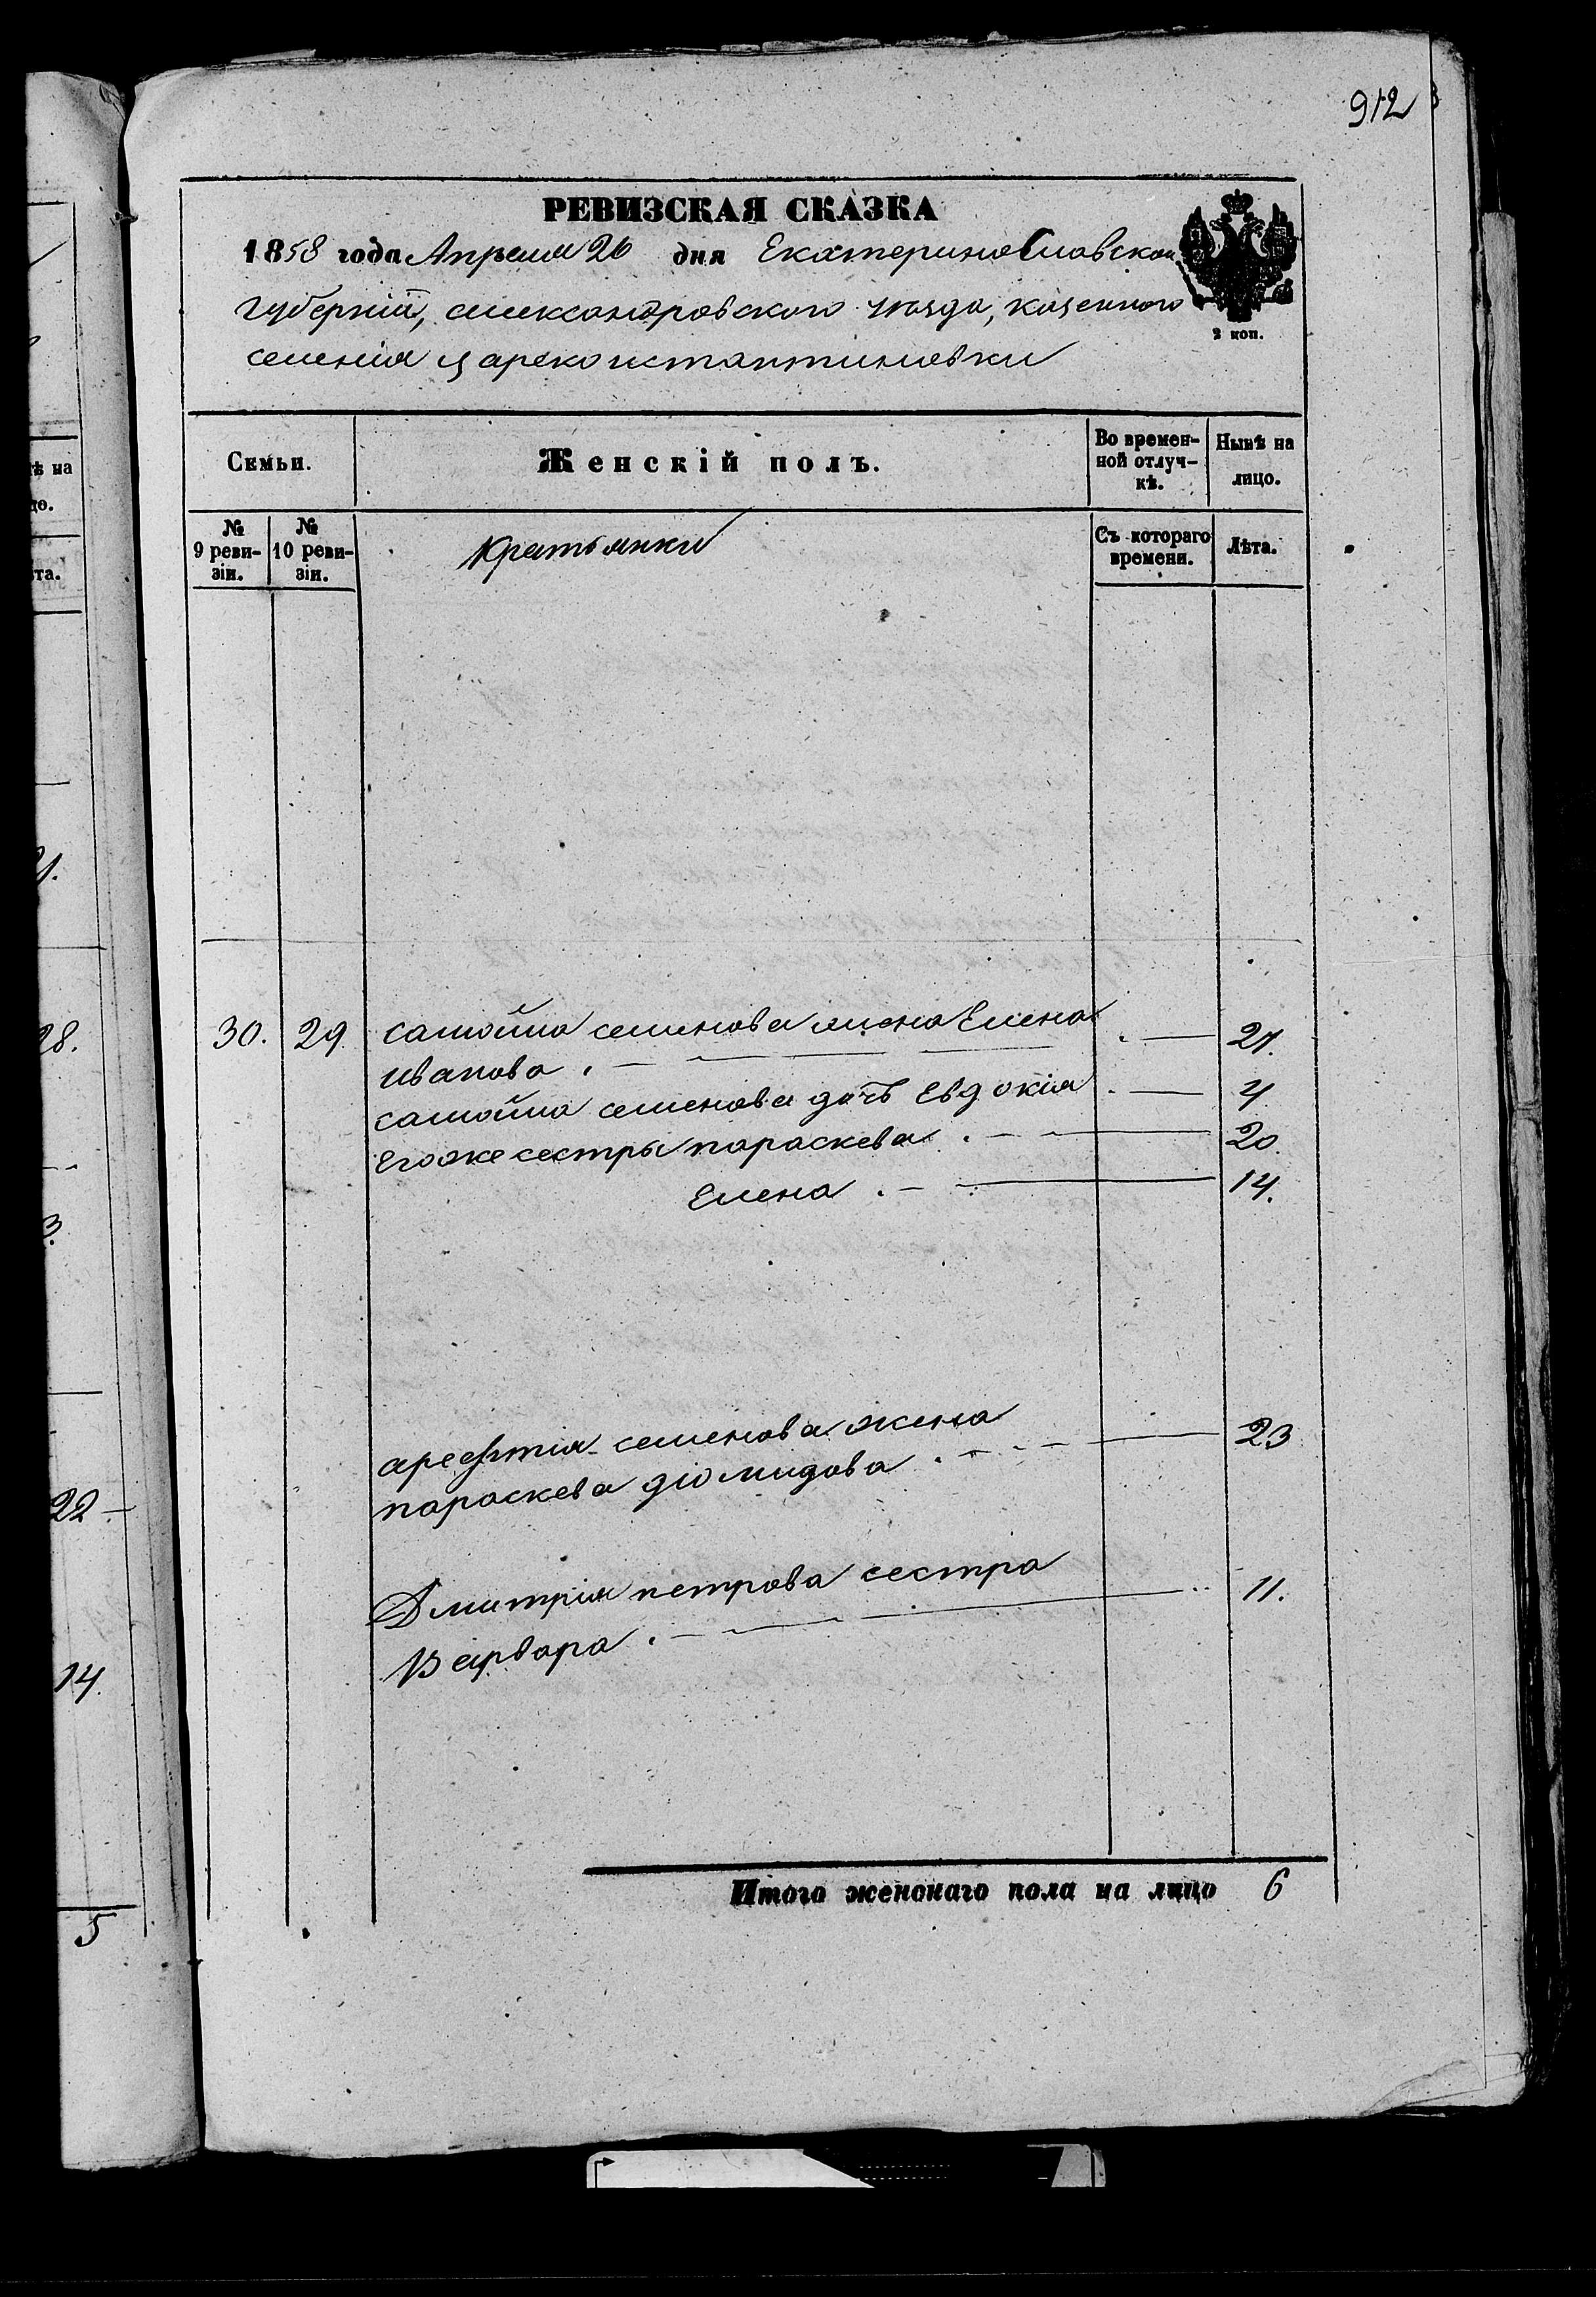 912
РЕВИЗСКАЯ СКАЗКА
1858 года Апреля 26 дня Екатеринославской
губерніи, александровского уезда, казенного
2 коп.
селенія Цареконстантиновки
Семьи.
Женскій полъ.
Во времен-
ной отлуч-
кѣ.
Нынѣ на
лицо.
№
9 реви-
зіи.
№
10 реви-
зіи.
Крестьянки
Съ котораго
времени.
Лѣта.
30. 29 самойла семенова жена Елена 27.
иванова
самойла семенова дочь Евдокія 4
Егоже сестры параскева 20.
Елена 14.
арефтія семенова жена 23
параскева діомидова
Дмитрія петрова сестра 11.
Варвара
Итого женскаго пола на лицо 6
ѣ на
цо.
та.
28.
3.
22
14.
5